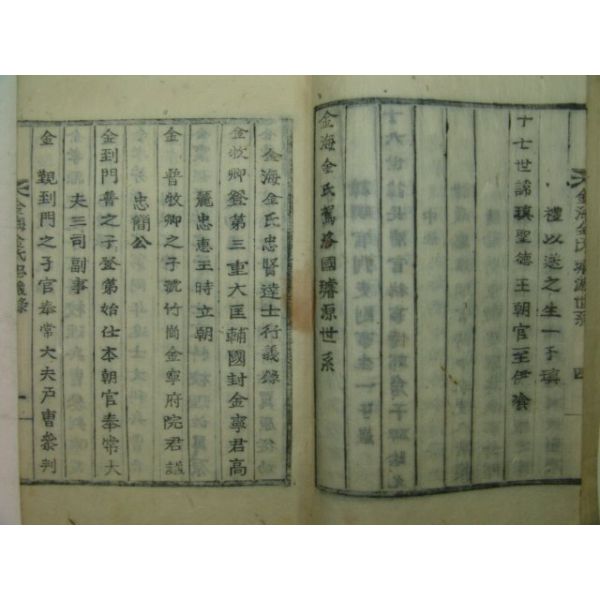 禮以送之生一子璜
十七世諱璜聖德王朝官至伊飡
金海金氏駕洛國璿源世系
金海金氏璿源世系
四
金海金氏忠賢達士行義錄
金牧卿登第三重大匡輔國封金寧君高
麗忠惠王時立朝
金普牧卿之子號竹岡金寧府院君諡
忠簡公
金到門普之子登第始仕本朝官奉常大
夫三司副事
金觀到門之子官奉常大夫戶曹參判
金海金氏
一